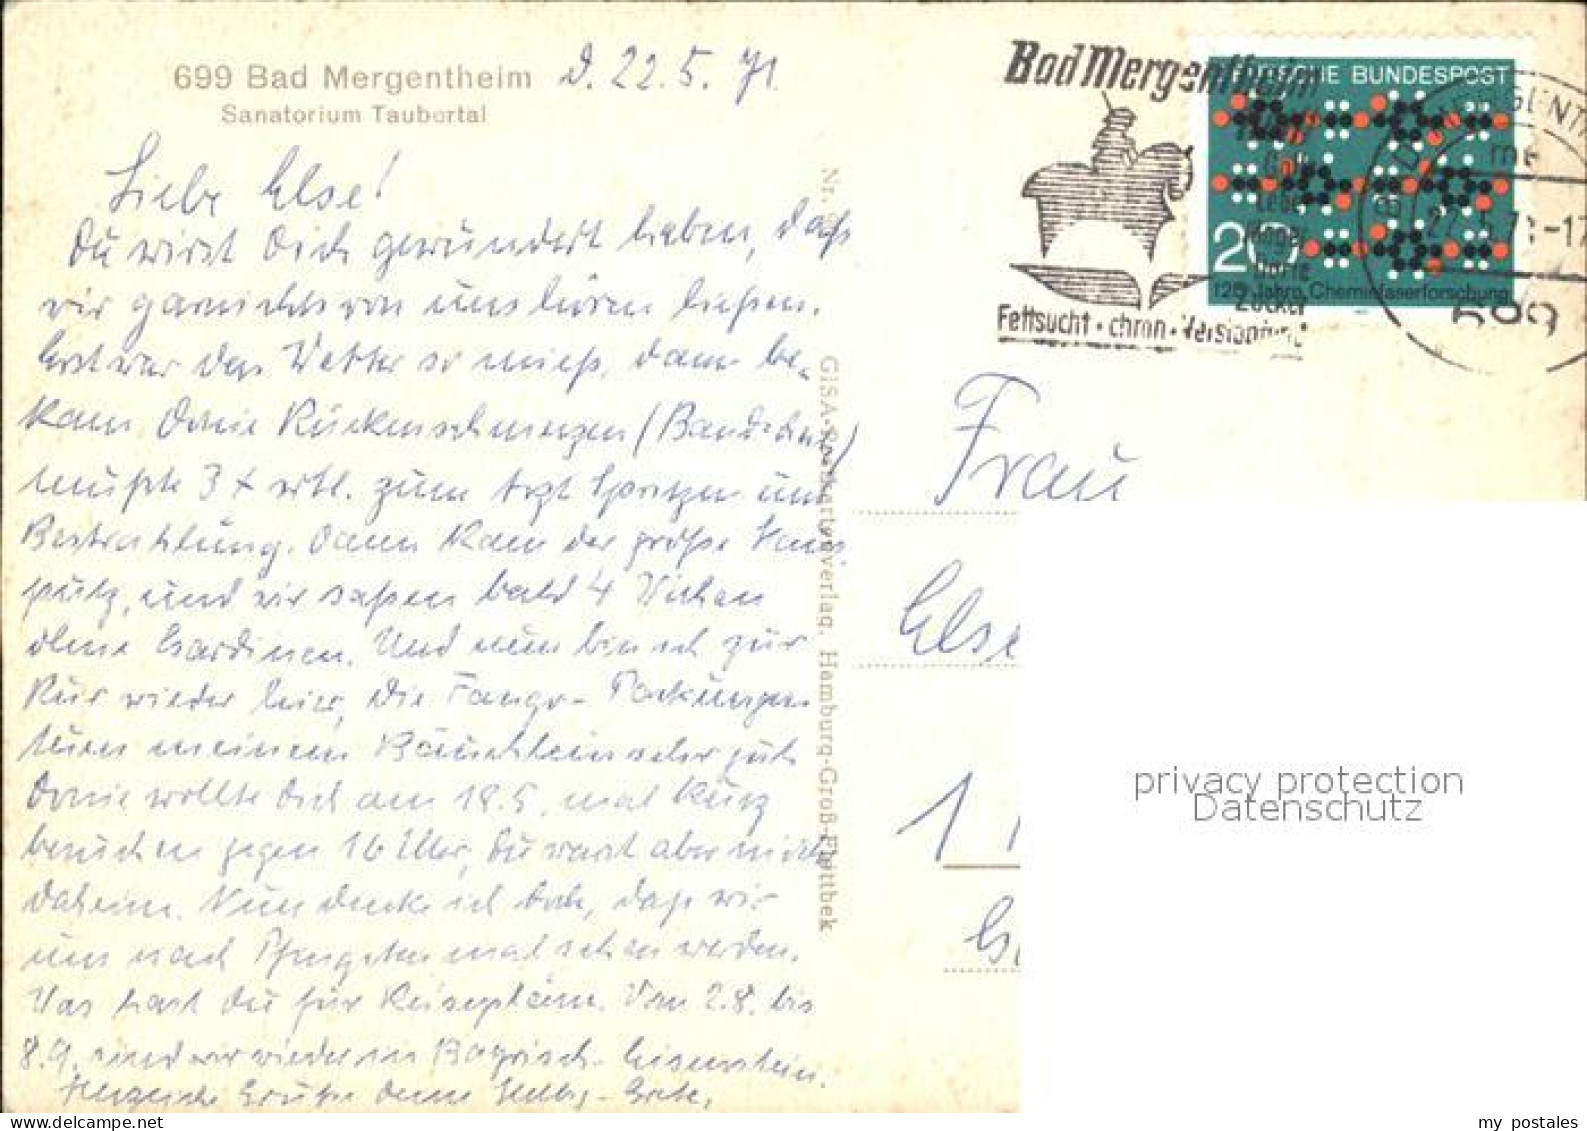 699 Bad Mergentheim
Sanatorium Taubertal
d. 22.5.71
Liebe Else!
Du wirst Dich gewundert haben, daß
wir garnichts von uns hören ließen.
Erst war das Wetter so mieß, dann be-
kam Rückenschmerzen (Band-
mußte 3 x zum Arzt Spritzen und
Bestrahlung. Dann kam der große Haus
putz, und wir saßen bald 4 Wochen
ohne Gardinen. Und nun bin ich zur
Kur wieder hier, die Fango-Packungen
tuen meinem Bäuchlein sehr gut.
wollte Dich am 18.5. mal kurz
besuchen gegen 16 Uhr, Du warst aber nicht
daheim. Nun denke ich doch, daß wir
uns nach Pfingsten mal sehen werden.
Was hast Du für Reisepläne. Von 2.8. bis
8.9. sind wir wieder in Bayrisch-Eisenstein.
Herzliche Grüße Deine
GISA-Postkartenverlag. Hamburg-Groß-Flottbek
Nr.
Bad Mergentheim
Galle
Leber
Magen
Därme
Zucker
Fettsucht · chron. Verstopfung
DEUTSCHE BUNDESPOST
20
125 Jahre Chemiefaserforschung
699
Frau
Else
1
privacy protection
Datenschutz
my postales